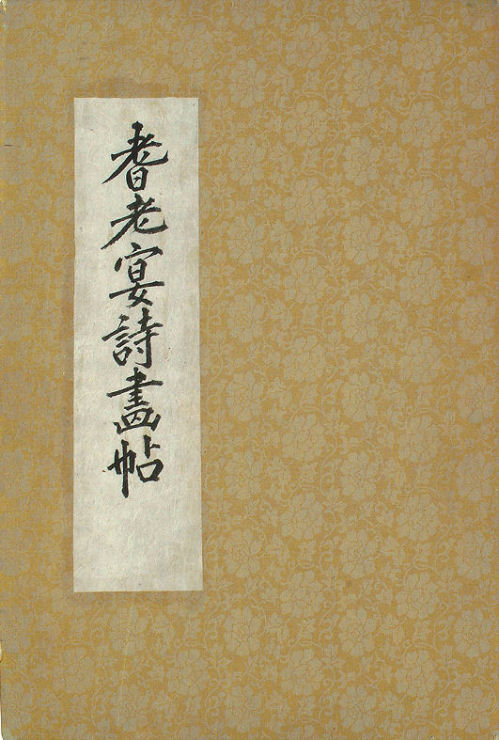 耆老宴詩畵帖